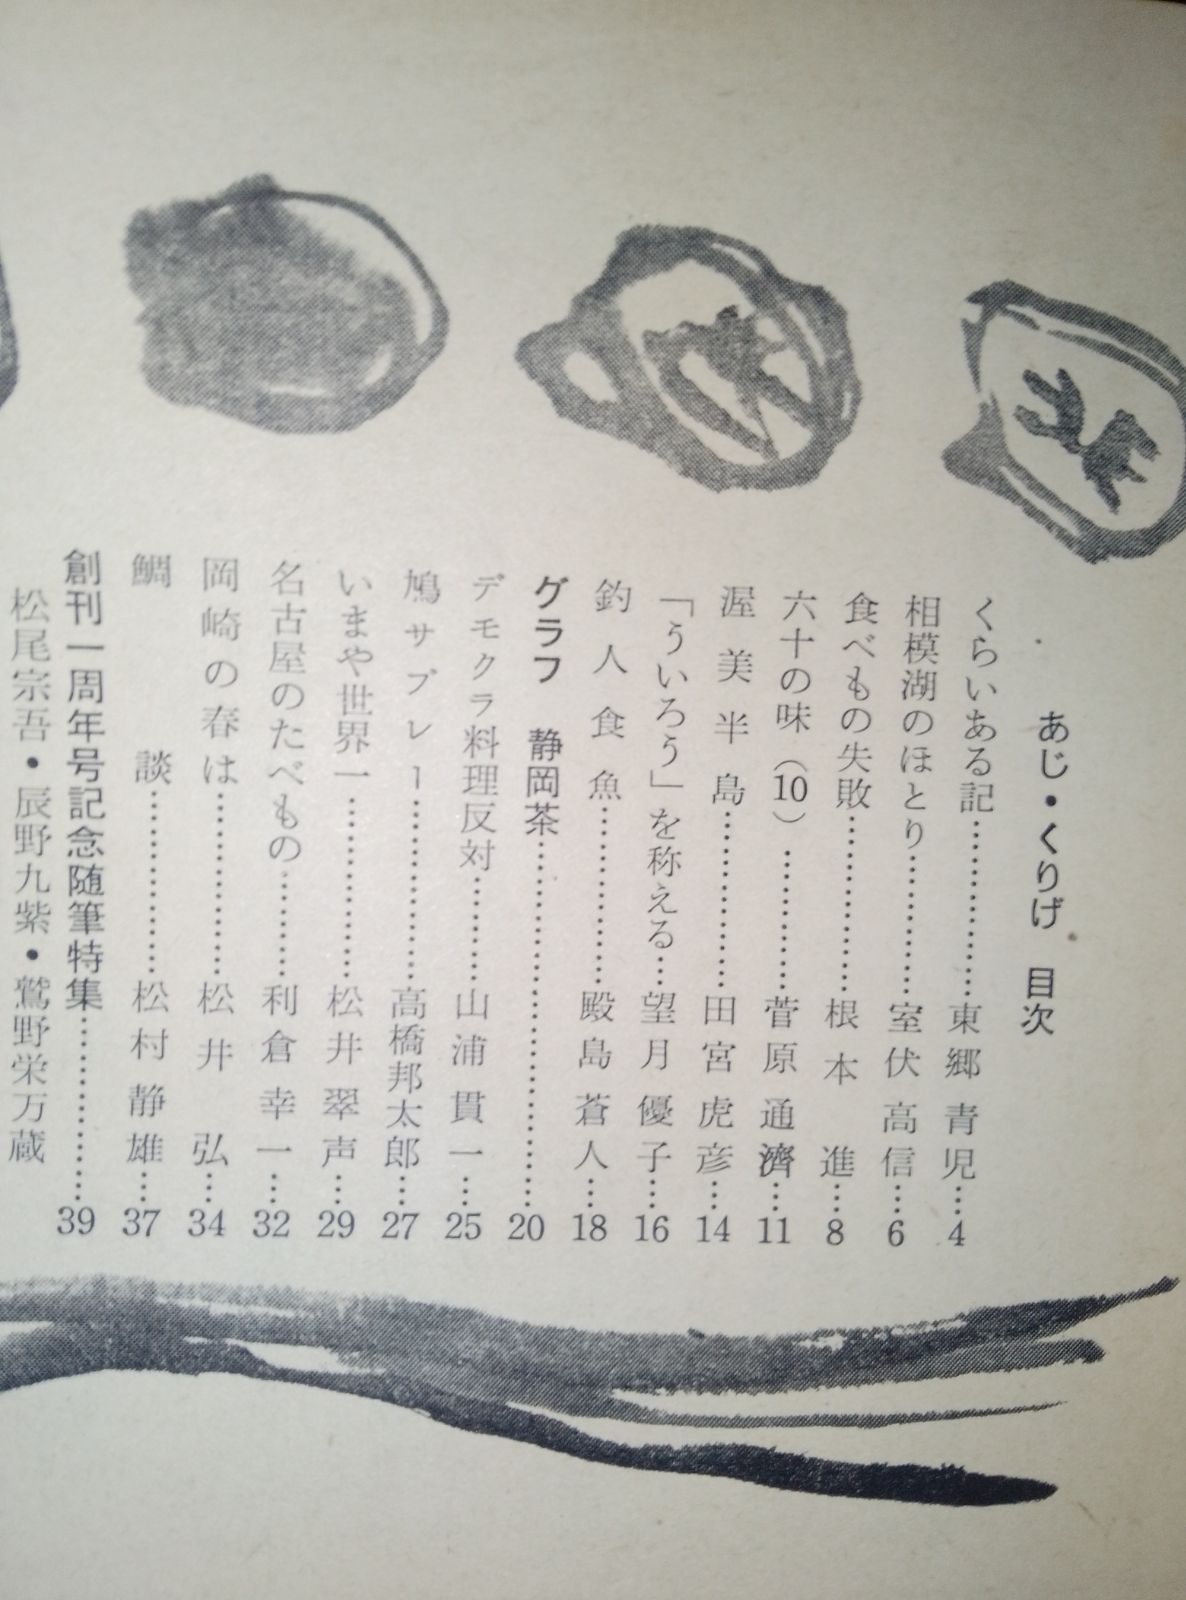 あじ・くりげ　目次
くらいある記…………東郷青児…4
相模湖のほとり…………室伏高信…6
食べもの失敗…………根本　進…8
六十の味（10）…………菅原通濟…11
渥美半島…………田宮虎彦…14
「ういろう」を称える…望月優子…16
釣人食魚…………殿島蒼人…18
グラフ　静岡茶…………20
デモクラ料理反対…………山浦貫一…25
鳩サブレー…………高橋邦太郎…27
いまや世界一…………松井翠声…29
名古屋のたべもの…………利倉幸一…32
岡崎の春は…………松井　弘…34
鯛　談…………松村静雄…37
創刊一周年号記念随筆特集…………39
松尾宗吾・辰野九紫・鷲野栄万蔵